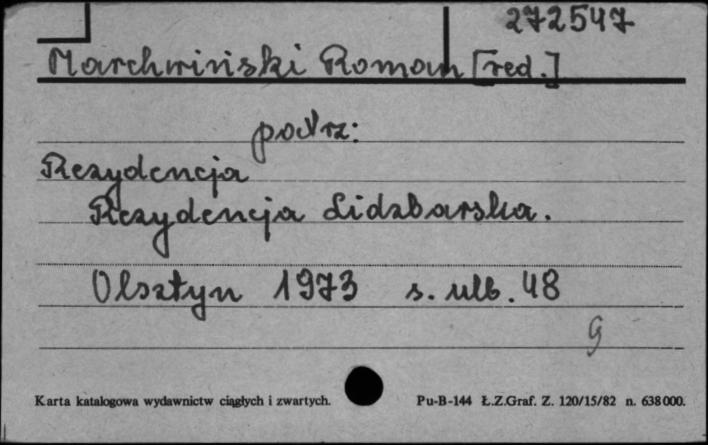 272547
Marchwiński Roman [red.]
patrz:
Rezydencja
Rezydencja Lidzbarska.
Olsztyn 1973 s. ulb. 48
g
Karta katalogowa wydawnictw ciągłych i zwartych. Pu-B-144 Ł.Z.Graf. Z. 120/15/82 n. 638000.